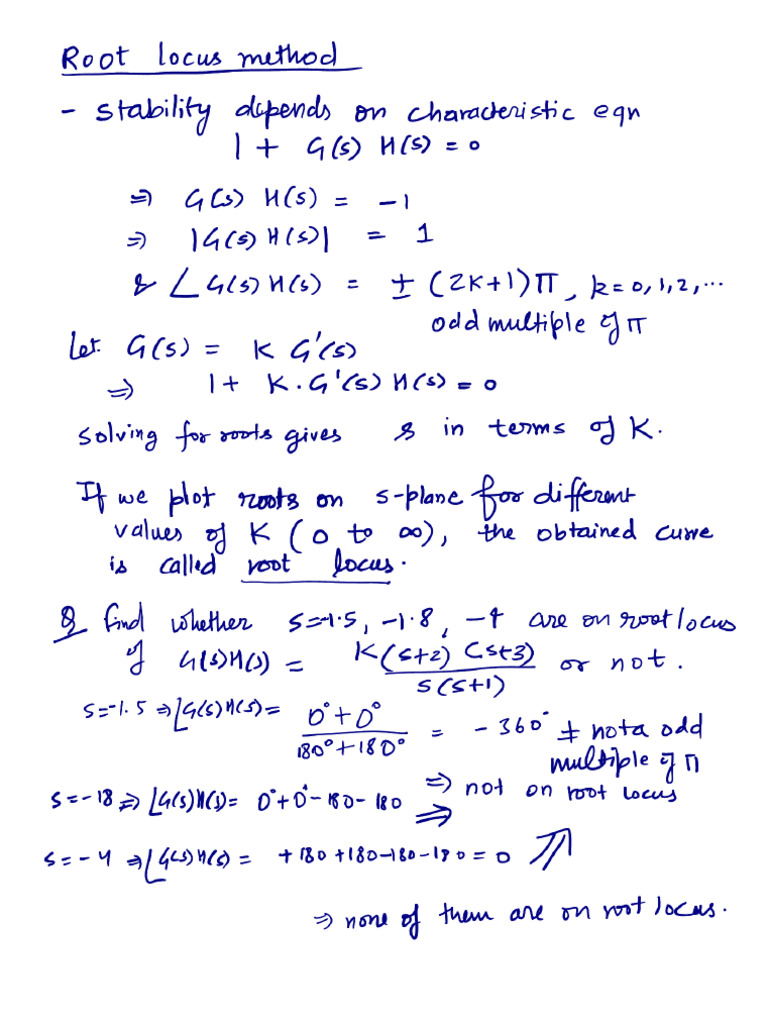 Root locus method
- stability depends on characteristic eqn
1 + G(s) H(s) = 0
⇒ G(s) H(s) = -1
⇒ |G(s) H(s)| = 1
& ∠G(s) H(s) = ± (2K+1)π, k = 0, 1, 2, ...
odd multiple of π
Let G(s) = K G'(s)
⇒ 1 + K. G'(s) H(s) = 0
solving for roots gives s in terms of K.
If we plot roots on s-plane for different
values of K (0 to ∞), the obtained curve
is called root locus.
Q Find whether s=-1.5, -1.8, -4 are on root locus
of G(s)H(s) = K(s+2) (s+3) / s(s+1) or not.
s=-1.5 ⇒ ∠G(s)H(s) = 0° + 0° / 180° + 180° = -360° ≠ not a odd
multiple of π
⇒ not on root locus
s=-18 ⇒ ∠G(s)H(s) = 0° + 0° - 180 - 180 ⇒
s=-4 ⇒ ∠G(s)H(s) = +180 +180 -180 -180 = 0
⇒ none of them are on root locus.